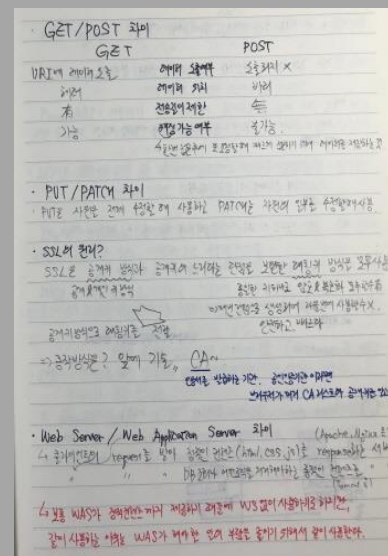 · GET/POST 차이
GET POST
URI에 데이터 노출 데이터 노출여부 노출되지 X
헤더 데이터 위치 바디
有 전송길이제한 無
가능 캐싱가능여부 불가능.
· PUT/PATCH 차이
· PUT은 자원을 전체 수정할 때 사용하고 PATCH는 자원의 일부를 수정할때 사용
· SSL의 원리?
SSL은 공개키 방식과 공개키의 느리다는 단점을 보완한 대칭키 방식을 모두 사용
공개키방식으로 대칭키를 전달
=> 동작방식은? 앞에 기술,, CA~
인증서를 발급하는 기관.
· Web Server / Web Application Server 차이 (Apache, Nginx 등)
↳ 클라이언트의 request를 받아 정적인 컨텐츠(html, css, js)를 response하는 서버
(Tomcat 등)
↳ 보통 WAS가 정적컨텐츠까지 제공하기 때문에 WS없이 사용하기도 하지만,
같이 사용하는 이유는 WAS가 해야할 일의 부담을 줄이기 위해서 같이 사용한다.